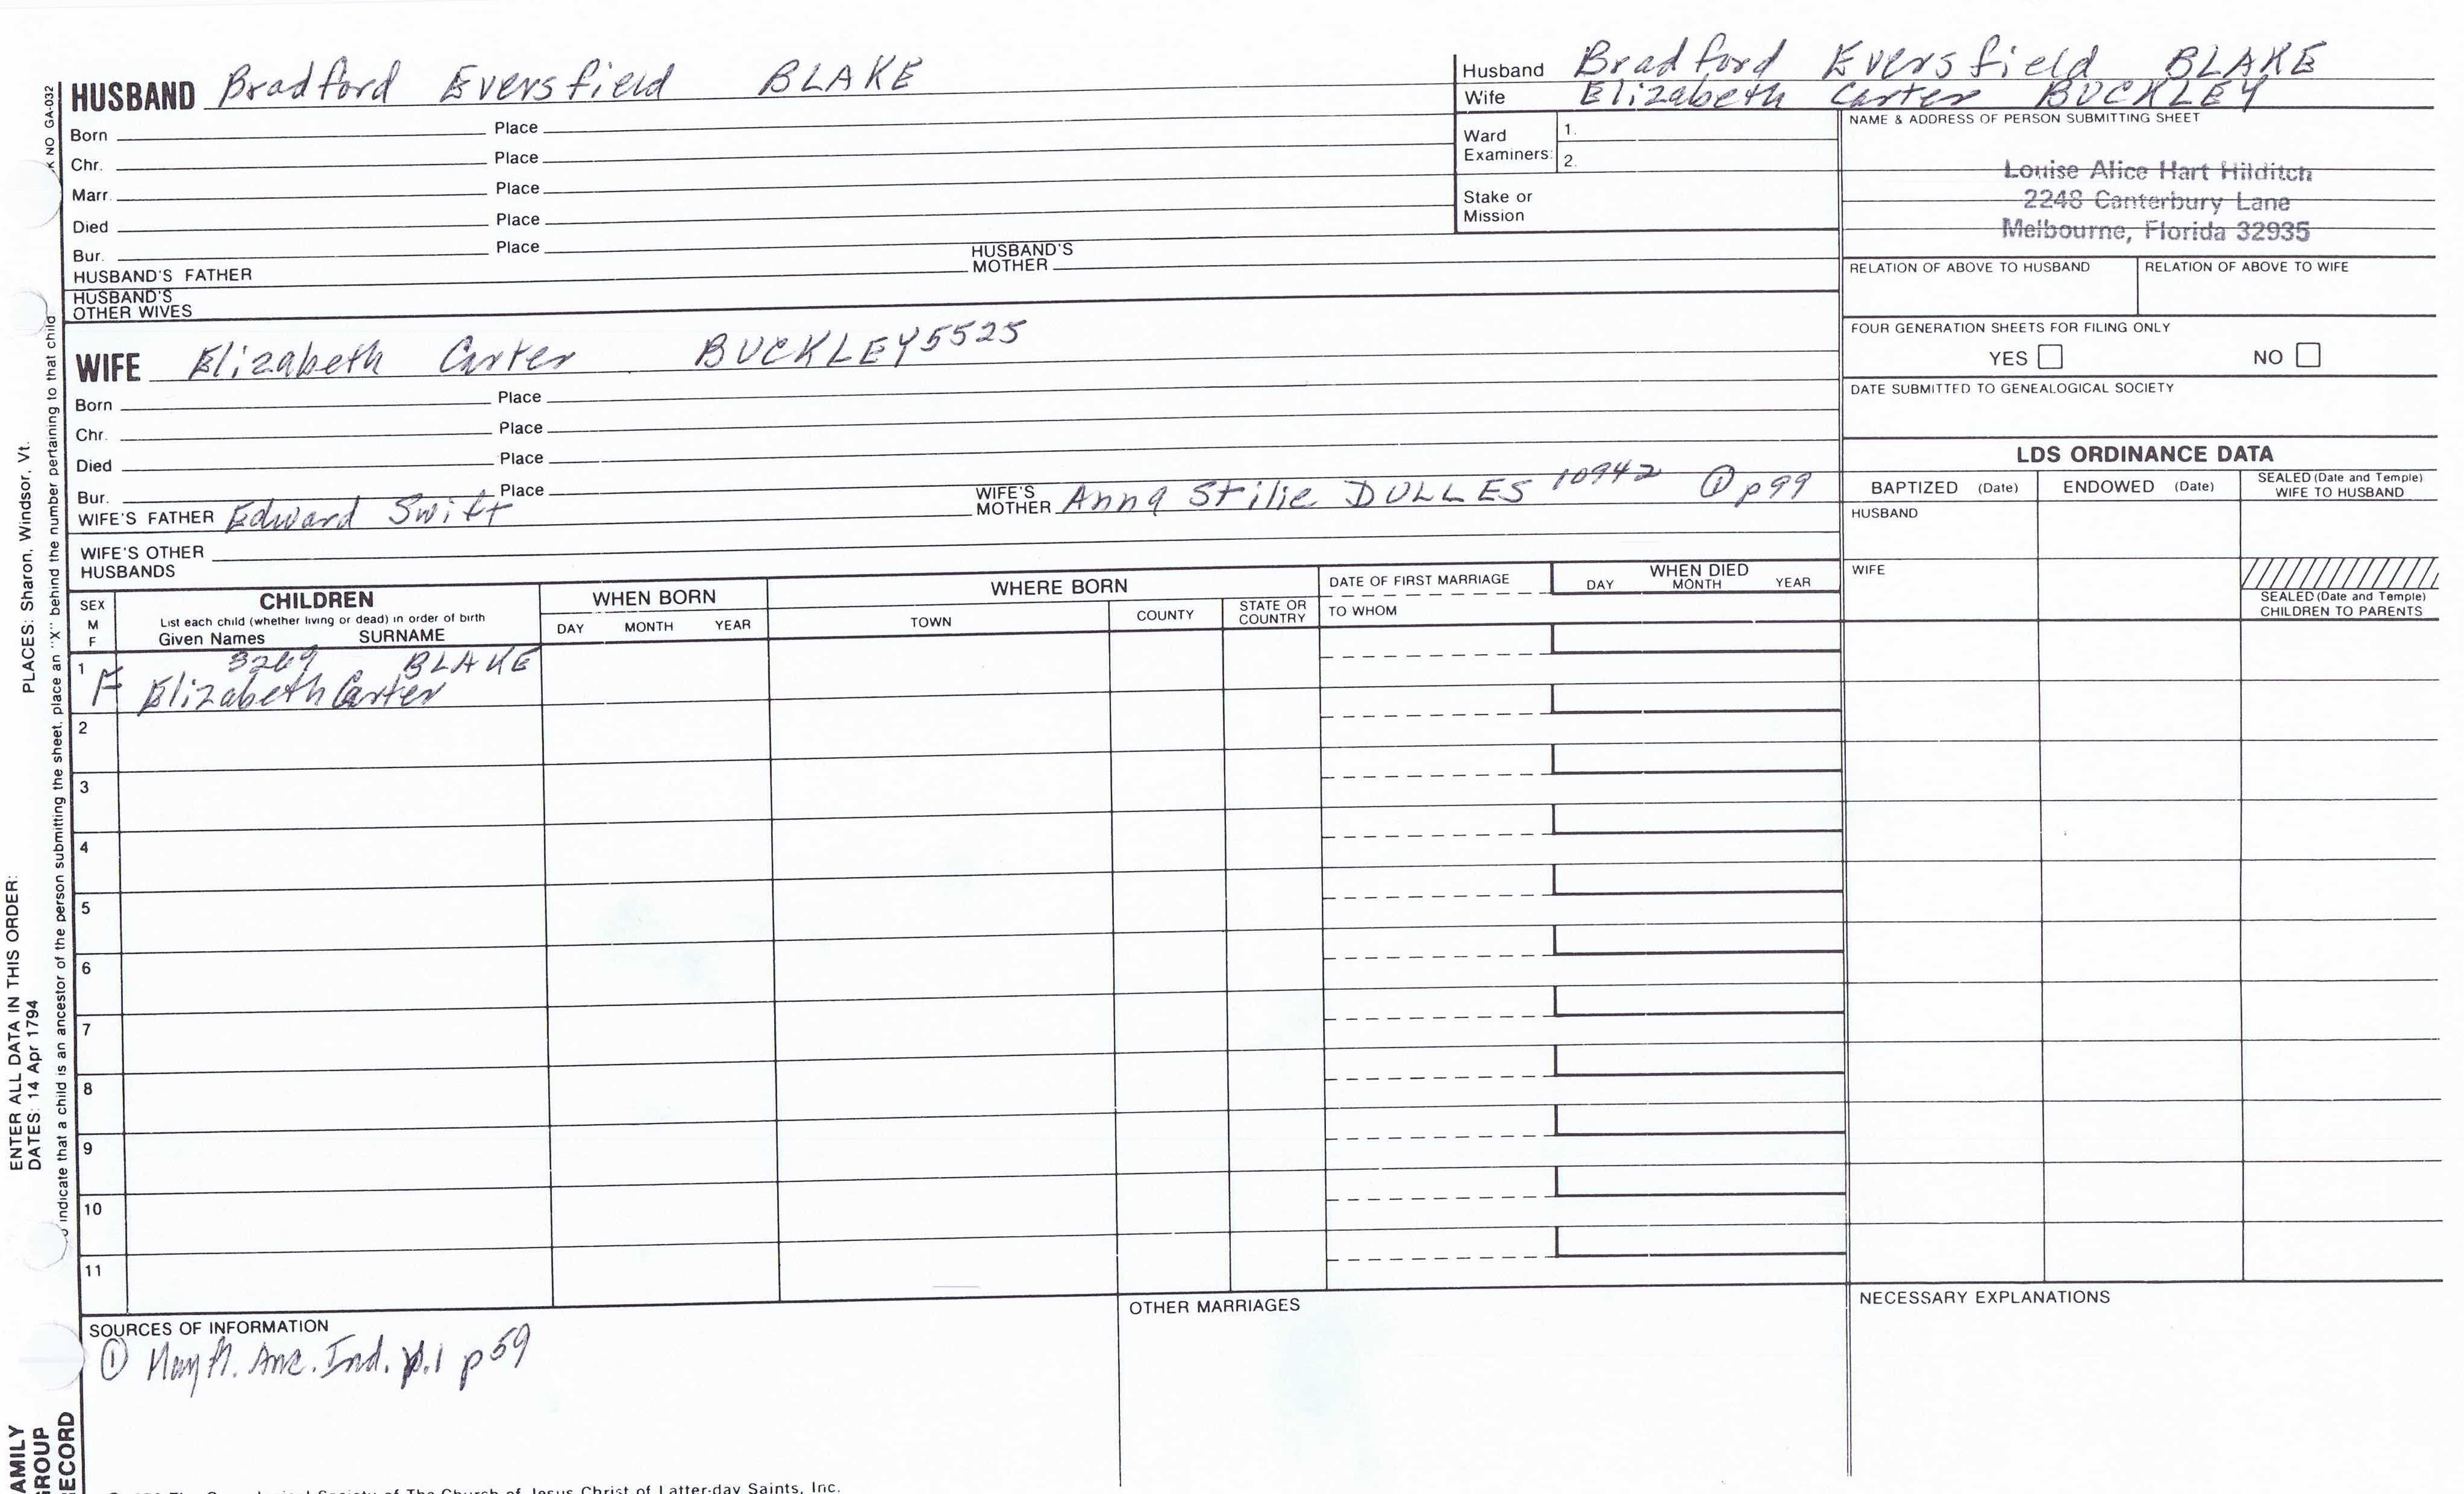 HUSBAND Bradford Eversfield BLAKE
Born Place
Chr. Place
Marr. Place
Died Place
Bur. Place
HUSBAND'S FATHER HUSBAND'S MOTHER
HUSBAND'S OTHER WIVES
WIFE Elizabeth Carter BUCKLEY 5525
Born Place
Chr. Place
Died Place
Bur. Place
WIFE'S FATHER Edward Swift WIFE'S MOTHER Anna Stilie DULLES 10942 ① p99
WIFE'S OTHER HUSBANDS
Husband Bradford Eversfield BLAKE
Wife Elizabeth Carter BUCKLEY
Ward Examiners: 1.
2.
Stake or Mission
NAME & ADDRESS OF PERSON SUBMITTING SHEET
Louise Alice Hart Hilditch
2248 Canterbury Lane
Melbourne, Florida 32935
RELATION OF ABOVE TO HUSBAND RELATION OF ABOVE TO WIFE
FOUR GENERATION SHEETS FOR FILING ONLY
YES NO
DATE SUBMITTED TO GENEALOGICAL SOCIETY
LDS ORDINANCE DATA
BAPTIZED (Date) ENDOWED (Date) SEALED (Date and Temple) WIFE TO HUSBAND
HUSBAND
WIFE
SEALED (Date and Temple) CHILDREN TO PARENTS
SEX M F
CHILDREN
List each child (whether living or dead) in order of birth
Given Names SURNAME
WHEN BORN
DAY MONTH YEAR
WHERE BORN
TOWN COUNTY STATE OR COUNTRY
DATE OF FIRST MARRIAGE
TO WHOM
WHEN DIED
DAY MONTH YEAR
1 F 3269 BLAKE
Elizabeth Carter
2
3
4
5
6
7
8
9
10
11
SOURCES OF INFORMATION
① Anc. Ind. p59
OTHER MARRIAGES
NECESSARY EXPLANATIONS
Society of The Church of Jesus Christ of Latter-day Saints, Inc.
NO GA-032
indicate that a child is an ancestor of the person submitting the sheet, place an "X" behind the number pertaining to that child
ENTER ALL DATA IN THIS ORDER:
DATES: 14 Apr 1794 PLACES: Sharon, Windsor, Vt.
AMILY
GROUP
RECORD